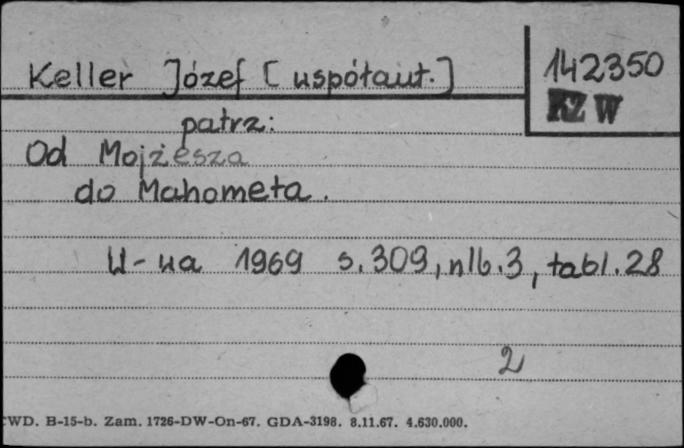 Keller Józef [uspółaut.]
142350
KZ W
patrz:
Od Mojżesza
do Mahometa.
W-wa 1969 s.309, nlb.3, tabl.28
2
CWD. B-15-b. Zam. 1726-DW-On-67. GDA-3198. 8.11.67. 4.630.000.